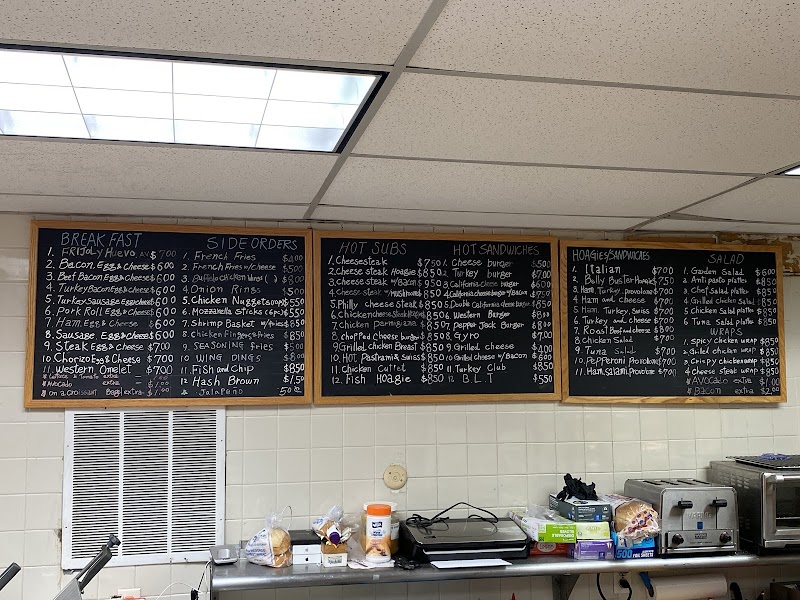 BREAKFAST
1. FRIJOLY HUEVO $7.00
2. Bacon, Egg & Cheese $6.00
3. Beef Bacon Egg & Cheese $6.00
4. Turkey Bacon Egg & Cheese $6.00
5. Turkey Sausage Egg & cheese $6.00
6. Pork Roll Egg & Cheese $6.00
7. Ham, Egg & Cheese $6.00
8. Sausage, Egg & Cheese $6.00
9. Steak Egg & Cheese $7.00
10. Chorizo Egg & Cheese $7.00
11. Western Omelet $7.00
# Lettuce & Tomato extra
# Avocado extra $1.00
# on a Croissant Bagel extra $1.00
SIDE ORDERS
1. French Fries
2. French Fries w/Cheese $5.00
3. Buffalo Chicken Wings $8.00
4. Onion Rings $5.00
5. Chicken Nuggets (10pc) $5.50
6. Mozzarella Sticks (6pc) $5.00
7. Shrimp Basket w/fries $8.50
8. Chicken Fingers & fries $8.50
9. SEASONING Fries $5.00
10. WING DINGS $8.00
11. Fish and Chip $8.50
12. Hash Brown $1.50
# Jalapeno 50¢
HOT SUBS
1. Cheesesteak $7.50
2. Cheese steak Hoagie $8.50
3. Cheese steak w/Bacon $9.50
4. Cheese steak w/Mushroom $8.50
5. Philly cheese steak $8.50
6. Chicken cheese steak $8.50
7. Chicken Parmigiana $8.50
8. chopped Cheese burger $8.50
9. Grilled Chicken Breast $8.50
10. HOT Pastrami & Swiss $8.50
11. Chicken Cutlet $8.50
12. Fish Hoagie $8.50
HOT SANDWICHES
1. Cheese burger $5.00
2. Turkey burger $7.00
3. California Cheese burger $6.00
4. California cheese burger w/Bacon $7.50
5. Double California cheese burger $8.50
6. Western Burger $8.00
7. Pepper Jack Burger $8.00
8. Gyro $7.00
9. Grilled cheese $4.00
10. Grilled Cheese w/Bacon $6.00
11. Turkey Club $8.50
12. B.L.T $5.50
HOAGIES/SANDWICHES
1 Italian $7.00
2. Belly Buster Hoagie $7.50
3. Ham, Turkey, provolone $7.00
4. Ham and cheese $7.00
5. Ham, Turkey, Swiss $7.00
6. Turkey and cheese $7.00
7. Roast Beef and cheese $8.00
8. Chicken Salad $7.00
9. Tuna Salad $7.00
10. Pepperoni Provolone $7.00
11. Ham, Salami, Provolone $7.00
SALAD
1. Garden Salad $6.00
2. Anti pasto platter $8.50
3. Chef Salad platter $8.50
4. Grilled chicken Salad $8.50
5. Chicken Salad platter $8.50
6. Tuna Salad platter $8.50
WRAPS
1. Spicy Chicken WRAP $8.50
2. Grilled chicken WRAP $8.50
3. Crispy chicken WRAP $8.50
4. Cheese steak WRAP $8.50
# AVOCADO extra $1.00
# Bacon extra $2.00
500